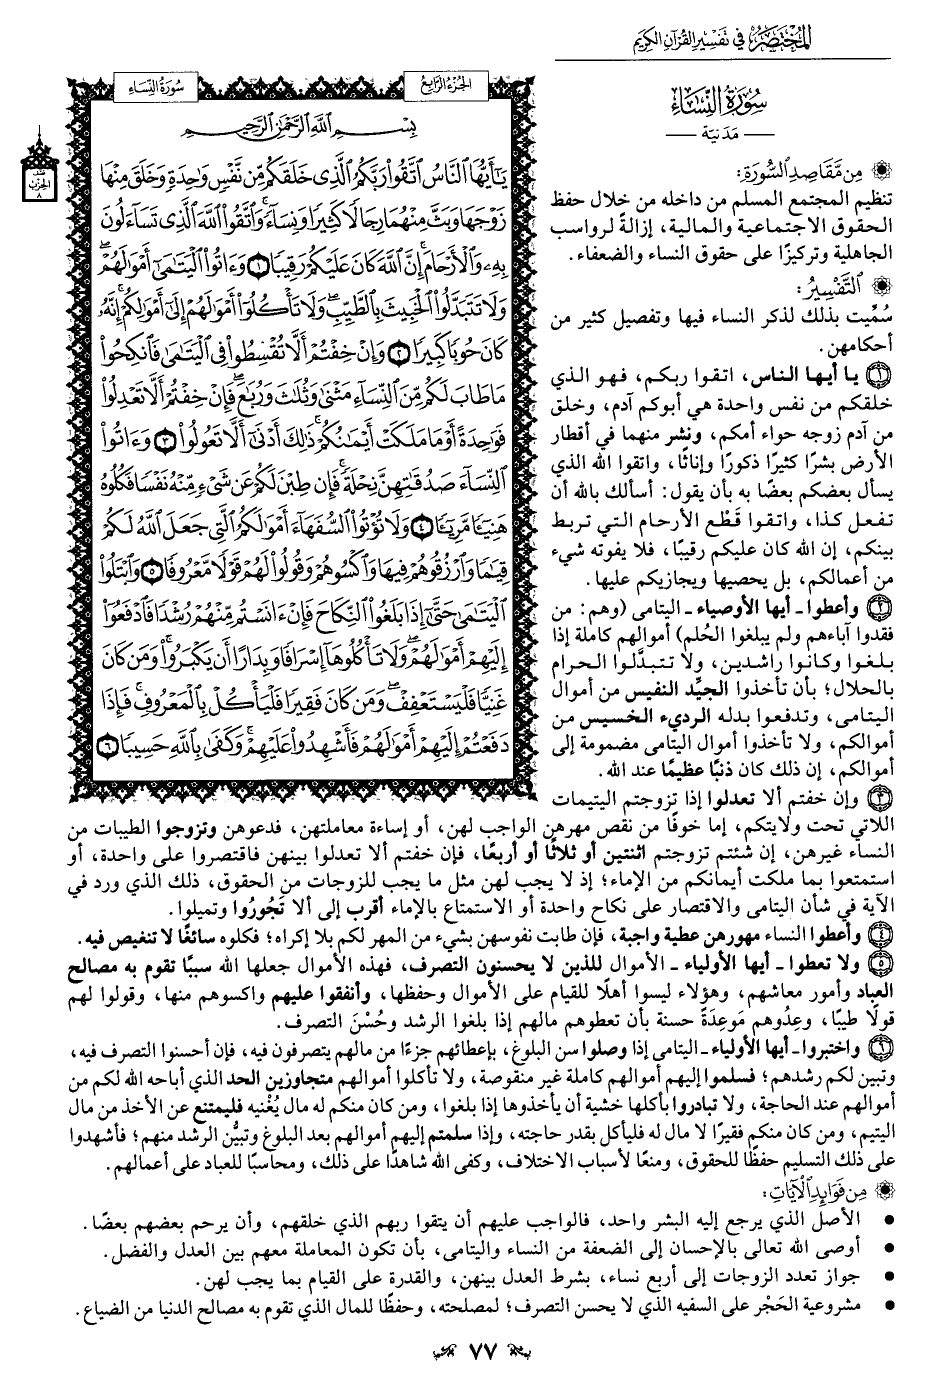 المختصر في تفسير القرآن الكريم
سورة النساء
مدنية
من مقاصد السورة:
تنظيم المجتمع المسلم من داخله من خلال حفظ
الحقوق الاجتماعية والمالية، إزالةً لرواسب
الجاهلية وتركيزًا على حقوق النساء والضعفاء.
التفسير:
سُمِّيت بذلك لذكر النساء فيها وتفصيل كثير من
أحكامهن.
١ يا أيها الناس، اتقوا ربكم، فهو الذي
خلقكم من نفس واحدة هي أبوكم آدم، وخلق
من آدم زوجه حواء أمكم، ونشر منهما في أقطار
الأرض بشرًا كثيرًا ذكورًا وإناثًا، واتقوا الله الذي
يسأل بعضكم بعضًا به بأن يقول: أسألك بالله أن
تفعل كذا، واتقوا قَطْع الأرحام التي تربط
بينكم، إن الله كان عليكم رقيبًا، فلا يفوته شيء
من أعمالكم، بل يحصيها ويجازيكم عليها.
٢ وأعطوا - أيها الأوصياء - اليتامى (وهم: من
فقدوا آباءهم ولم يبلغوا الحُلم) أموالهم كاملة إذا
بلغوا وكانوا راشدين، ولا تتبدَّلوا الحرام
بالحلال؛ بأن تأخذوا الجيِّد النفيس من أموال
اليتامى، وتدفعوا بدله الرديء الخسيس من
أموالكم، ولا تأخذوا أموال اليتامى مضمومة إلى
أموالكم، إن ذلك كان ذنبًا عظيمًا عند الله.
٣ وإن خفتم ألا تعدلوا إذا تزوجتم اليتيمات
اللاتي تحت ولايتكم، إما خوفًا من نقص مهرهن الواجب لهن، أو إساءة معاملتهن، فدعوهن وتزوجوا الطيبات من
النساء غيرهن، إن شئتم تزوجتم اثنتين أو ثلاثًا أو أربعًا، فإن خفتم ألا تعدلوا بينهن فاقتصروا على واحدة، أو
استمتعوا بما ملكت أيمانكم من الإماء؛ إذ لا يجب لهن مثل ما يجب للزوجات من الحقوق، ذلك الذي ورد في
الآية في شأن اليتامى والاقتصار على نكاح واحدة أو الاستمتاع بالإماء أقرب إلى ألا تَجُورُوا وتميلوا.
٤ وأعطوا النساء مهورهن عطية واجبة، فإن طابت نفوسهن بشيء من المهر لكم بلا إكراه؛ فكلوه سائغًا لا تنغيص فيه.
٥ ولا تعطوا - أيها الأولياء - الأموال للذين لا يحسنون التصرف، فهذه الأموال جعلها الله سببًا تقوم به مصالح
العباد وأمور معاشهم، وهؤلاء ليسوا أهلًا للقيام على الأموال وحفظها، وأنفقوا عليهم واكسوهم منها، وقولوا لهم
قولًا طيبًا، وعِدُوهم مَوعِدَةً حسنة بأن تعطوهم مالهم إذا بلغوا الرشد وحُسْنَ التصرف.
٦ واختبروا - أيها الأولياء - اليتامى إذا وصلوا سن البلوغ، بإعطائهم جزءًا من مالهم يتصرفون فيه، فإن أحسنوا التصرف فيه،
وتبين لكم رشدهم؛ فسلموا إليهم أموالهم كاملة غير منقوصة، ولا تأكلوا أموالهم متجاوزين الحد الذي أباحه الله لكم من
أموالهم عند الحاجة، ولا تبادروا بأكلها خشية أن يأخذوها إذا بلغوا، ومن كان منكم له مال يُغْنيه فليمتنع عن الأخذ من مال
اليتيم، ومن كان منكم فقيرًا لا مال له فليأكل بقدر حاجته، وإذا سلمتم إليهم أموالهم بعد البلوغ وتبيُّن الرشد منهم؛ فأشهدوا
على ذلك التسليم حفظًا للحقوق، ومنعًا لأسباب الاختلاف، وكفى الله شاهدًا على ذلك، ومحاسبًا للعباد على أعمالهم.
من فوائد الآيات:
• الأصل الذي يرجع إليه البشر واحد، فالواجب عليهم أن يتقوا ربهم الذي خلقهم، وأن يرحم بعضهم بعضًا.
• أوصى الله تعالى بالإحسان إلى الضعفة من النساء واليتامى، بأن تكون المعاملة معهم بين العدل والفضل.
• جواز تعدد الزوجات إلى أربع نساء، بشرط العدل بينهن، والقدرة على القيام بما يجب لهن.
• مشروعية الحَجْر على السفيه الذي لا يحسن التصرف؛ لمصلحته، وحفظًا للمال الذي تقوم به مصالح الدنيا من الضياع.
الجزء الرابع
سورة النساء
بِسْمِ اللَّهِ الرَّحْمَٰنِ الرَّحِيمِ
يَٰٓأَيُّهَا ٱلنَّاسُ ٱتَّقُوا۟ رَبَّكُمُ ٱلَّذِى خَلَقَكُم مِّن نَّفْسٍ وَٰحِدَةٍ وَخَلَقَ مِنْهَا
زَوْجَهَا وَبَثَّ مِنْهُمَا رِجَالًا كَثِيرًا وَنِسَآءً ۚ وَٱتَّقُوا۟ ٱللَّهَ ٱلَّذِى تَسَآءَلُونَ
بِهِۦ وَٱلْأَرْحَامَ ۚ إِنَّ ٱللَّهَ كَانَ عَلَيْكُمْ رَقِيبًا ١ وَءَاتُوا۟ ٱلْيَتَٰمَىٰٓ أَمْوَٰلَهُمْ ۖ
وَلَا تَتَبَدَّلُوا۟ ٱلْخَبِيثَ بِٱلطَّيِّبِ ۖ وَلَا تَأْكُلُوٓا۟ أَمْوَٰلَهُمْ إِلَىٰٓ أَمْوَٰلِكُمْ ۚ إِنَّهُۥ
كَانَ حُوبًا كَبِيرًا ٢ وَإِنْ خِفْتُمْ أَلَّا تُقْسِطُوا۟ فِى ٱلْيَتَٰمَىٰ فَٱنكِحُوا۟
مَا طَابَ لَكُم مِّنَ ٱلنِّسَآءِ مَثْنَىٰ وَثُلَٰثَ وَرُبَٰعَ ۖ فَإِنْ خِفْتُمْ أَلَّا تَعْدِلُوا۟
فَوَٰحِدَةً أَوْ مَا مَلَكَتْ أَيْمَٰنُكُمْ ۚ ذَٰلِكَ أَدْنَىٰٓ أَلَّا تَعُولُوا۟ ٣ وَءَاتُوا۟
ٱلنِّسَآءَ صَدُقَٰتِهِنَّ نِحْلَةً ۚ فَإِن طِبْنَ لَكُمْ عَن شَىْءٍ مِّنْهُ نَفْسًا فَكُلُوهُ
هَنِيٓـًٔا مَّرِيٓـًٔا ٤ وَلَا تُؤْتُوا۟ ٱلسُّفَهَآءَ أَمْوَٰلَكُمُ ٱلَّتِى جَعَلَ ٱللَّهُ لَكُمْ
قِيَٰمًا وَٱرْزُقُوهُمْ فِيهَا وَٱكْسُوهُمْ وَقُولُوا۟ لَهُمْ قَوْلًا مَّعْرُوفًا ٥ وَٱبْتَلُوا۟
ٱلْيَتَٰمَىٰ حَتَّىٰٓ إِذَا بَلَغُوا۟ ٱلنِّكَاحَ فَإِنْ ءَانَسْتُم مِّنْهُمْ رُشْدًا فَٱدْفَعُوٓا۟
إِلَيْهِمْ أَمْوَٰلَهُمْ ۖ وَلَا تَأْكُلُوهَآ إِسْرَافًا وَبِدَارًا أَن يَكْبَرُوا۟ ۚ وَمَن كَانَ
غَنِيًّا فَلْيَسْتَعْفِفْ ۖ وَمَن كَانَ فَقِيرًا فَلْيَأْكُلْ بِٱلْمَعْرُوفِ ۚ فَإِذَا
دَفَعْتُمْ إِلَيْهِمْ أَمْوَٰلَهُمْ فَأَشْهِدُوا۟ عَلَيْهِمْ ۚ وَكَفَىٰ بِٱللَّهِ حَسِيبًا ٦
الحزب
٨
٧٧